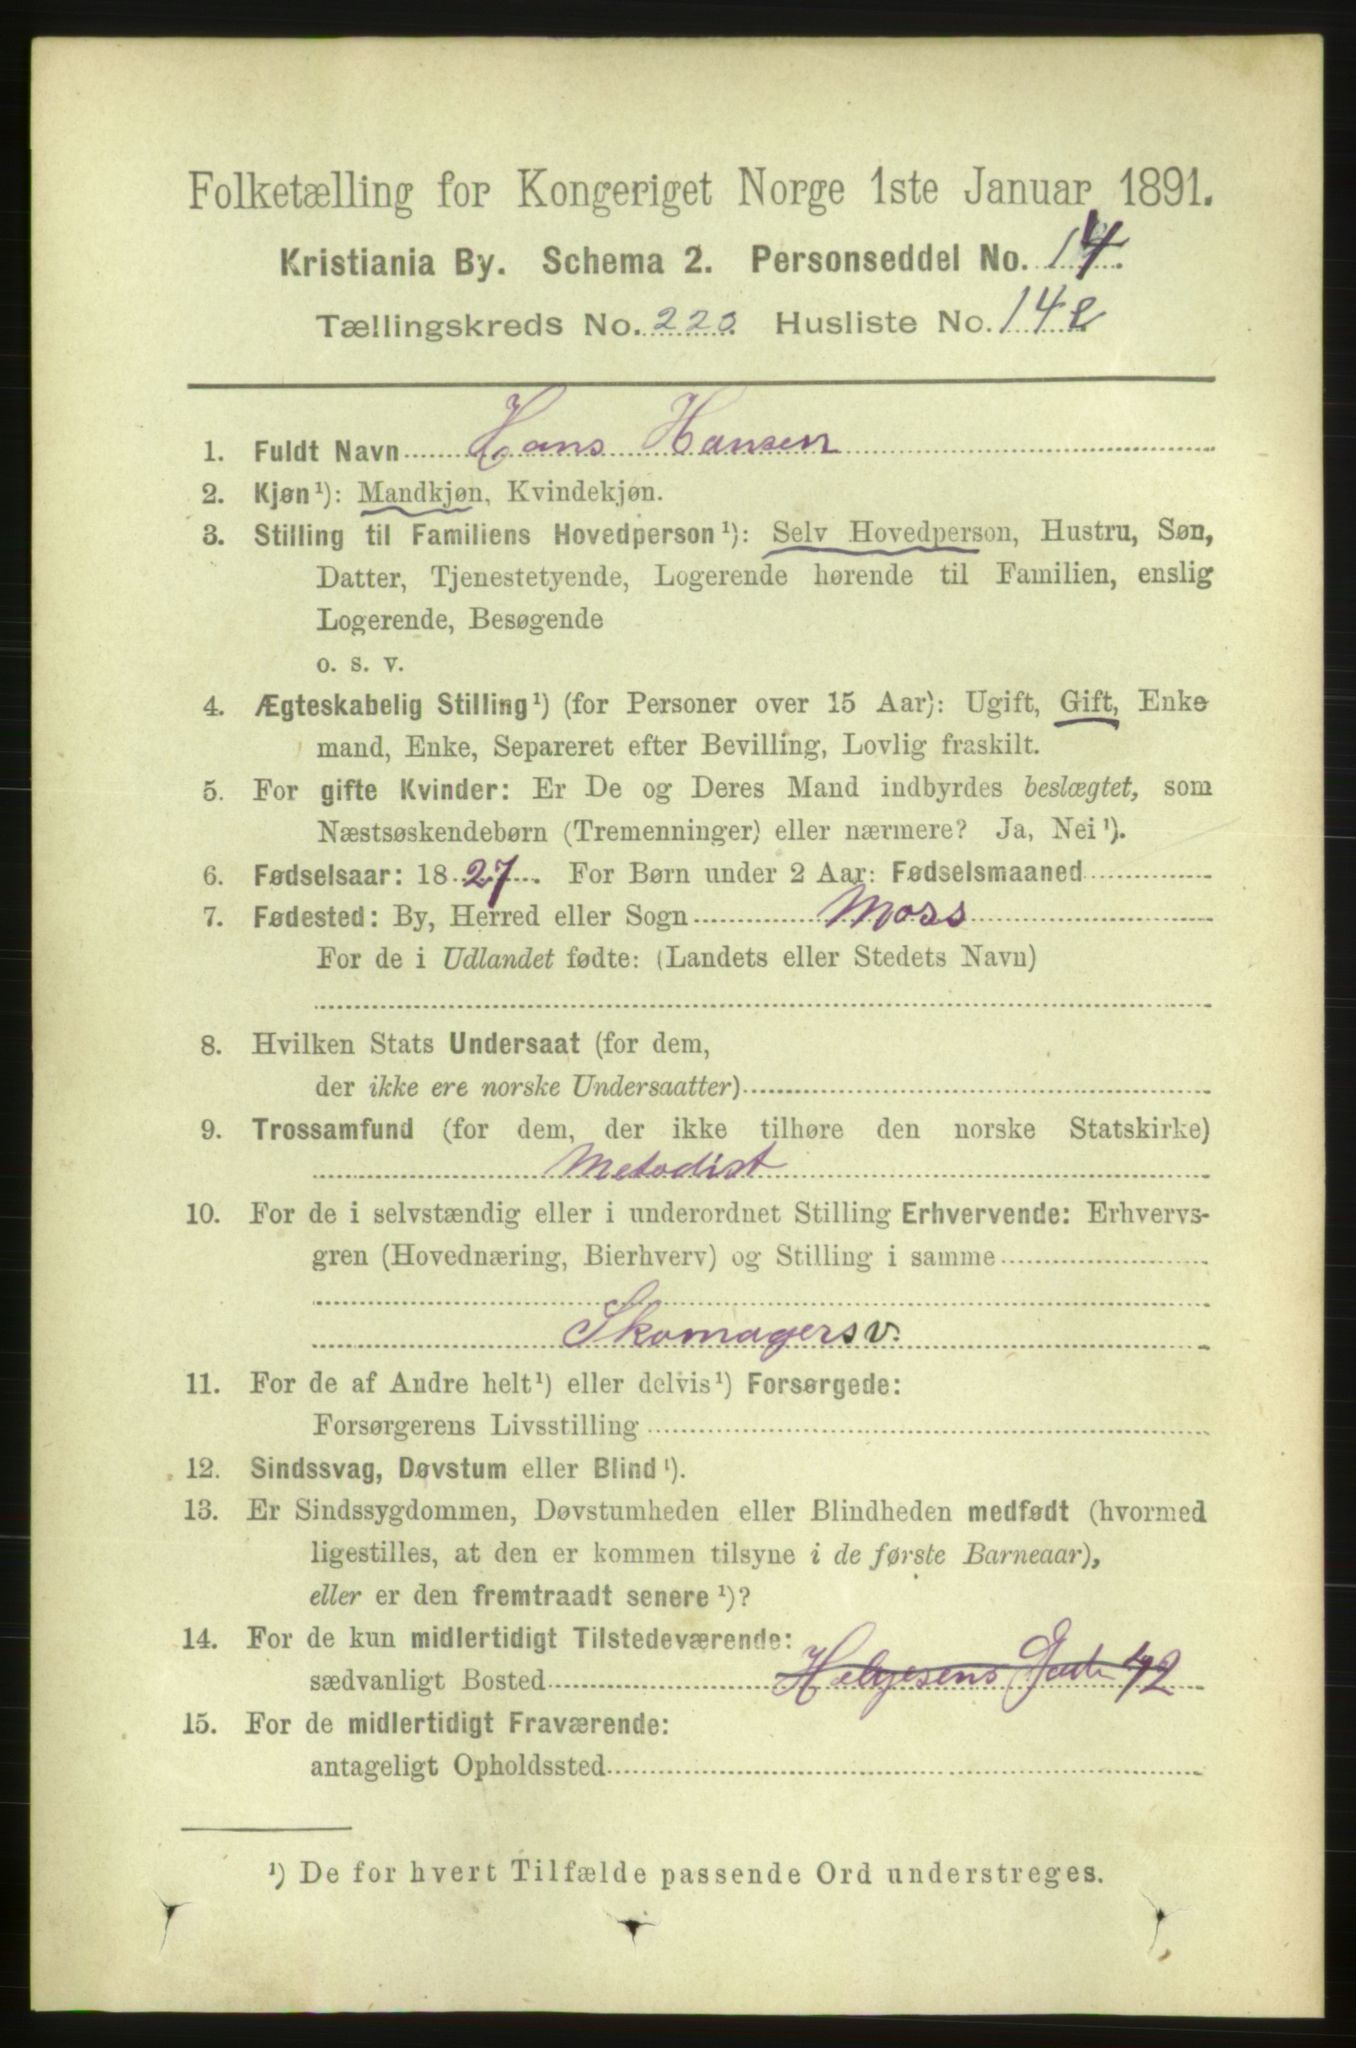 Folketælling for Kongeriget Norge 1ste Januar 1891.
Kristiania By. Schema 2. Personseddel No. 14.
Tællingskreds No. 220. Husliste No. 14 e
1. Fuldt Navn Hans Hansen
2. Kjøn¹): Mandkjøn, Kvindekjøn.
3. Stilling til Familiens Hovedperson¹): Selv Hovedperson, Hustru, Søn,
Datter, Tjenestetyende, Logerende hørende til Familien, enslig
Logerende, Besøgende
o. s. v.
4. Ægteskabelig Stilling¹) (for Personer over 15 Aar): Ugift, Gift, Enke
mand, Enke, Separeret efter Bevilling, Lovlig fraskilt.
5. For gifte Kvinder: Er De og Deres Mand indbyrdes beslægtet, som
Næstsøskendebørn (Tremenninger) eller nærmere? Ja, Nei¹).
6. Fødselsaar: 1827. For Børn under 2 Aar: Fødselsmaaned
7. Fødested: By, Herred eller Sogn Moss
For de i Udlandet fødte: (Landets eller Stedets Navn)
8. Hvilken Stats Undersaat (for dem,
der ikke ere norske Undersaatter)
9. Trossamfund (for dem, der ikke tilhøre den norske Statskirke)
Metodist
10. For de i selvstændig eller i underordnet Stilling Erhvervende: Erhvervs-
gren (Hovednæring, Bierhverv) og Stilling i samme
Skomagersv.
11. For de af Andre helt¹) eller delvis¹) Forsørgede:
Forsørgerens Livsstilling
12. Sindssvag, Døvstum eller Blind¹).
13. Er Sindssygdommen, Døvstumheden eller Blindheden medfødt (hvormed
ligestilles, at den er kommen tilsyne i de første Barneaar),
eller er den fremtraadt senere¹)?
14. For de kun midlertidigt Tilstedeværende:
sædvanligt Bosted Helgesens Gade 42
15. For de midlertidigt Fraværende:
antageligt Opholdssted
¹) De for hvert Tilfælde passende Ord understreges.